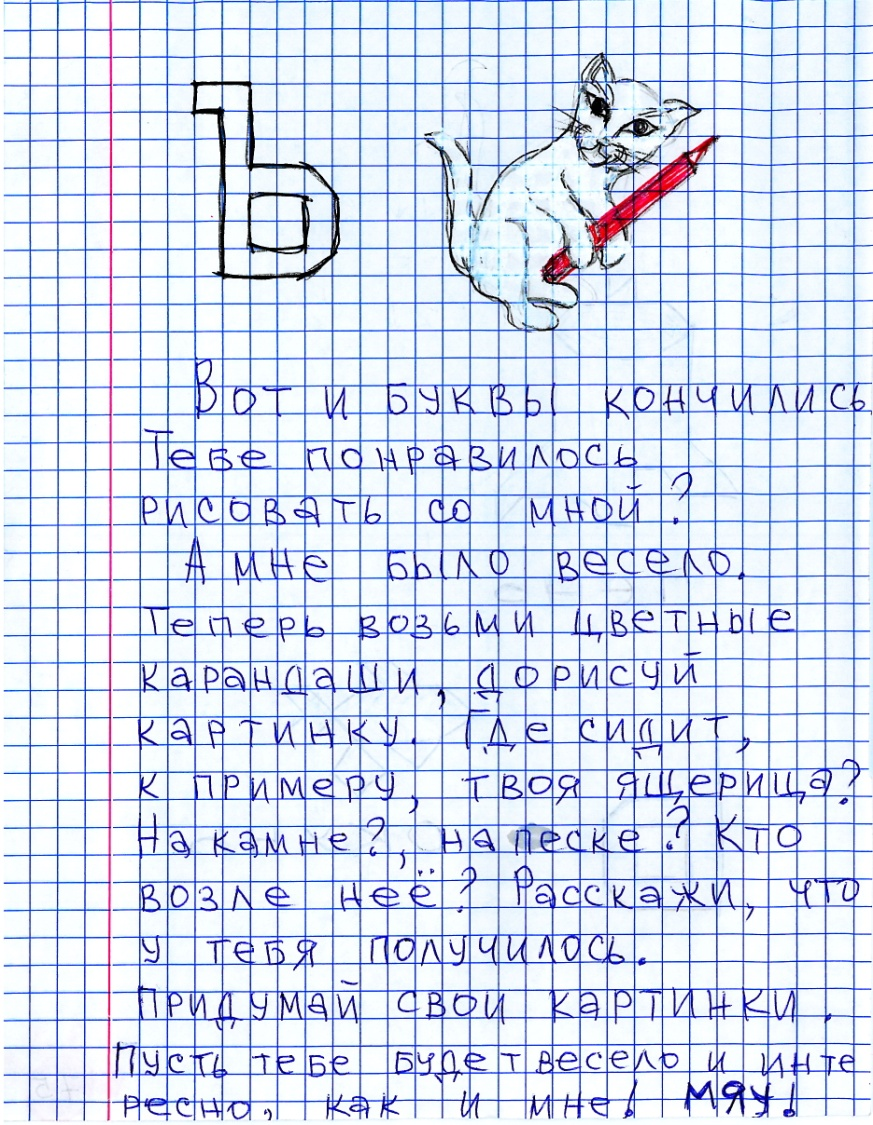 Ъ
Вот и буквы кончились
Тебе понравилось
рисовать со мной?
А мне было весело.
Теперь возьми цветные
карандаши, дорисуй
картинку. Где сидит,
к примеру, твоя ящерица?
На камне?, на песке? Кто
возле неё? Расскажи, что
у тебя получилось.
Придумай свои картинки.
Пусть тебе будет весело и инте
ресно, как и мне! МЯУ!